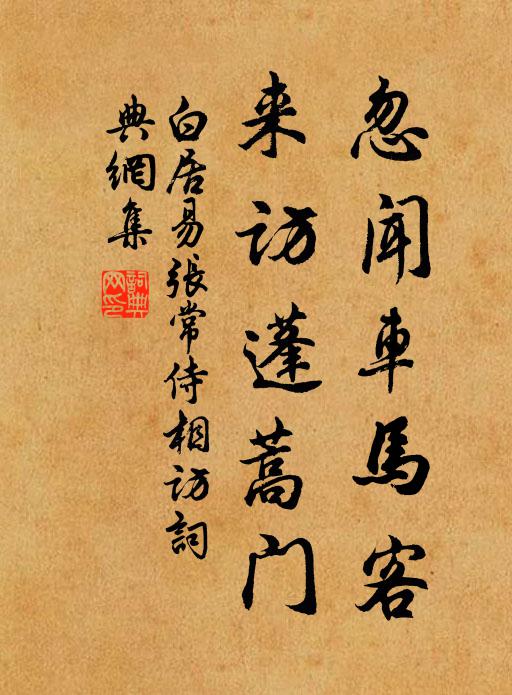 忽闻車馬客
来访蓬蒿门
白居易張常侍相访詞
典網集
詞典
网印